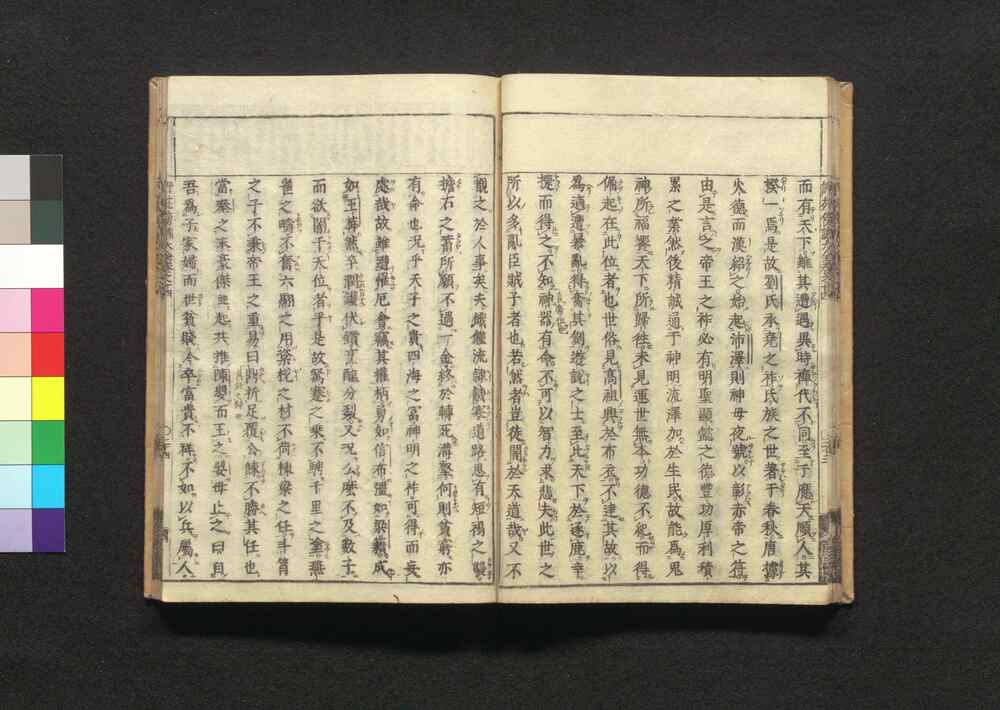 而有天下雖其遭遇異時禪代不同至于應天順人其
揆一焉是故劉氏承堯之祚氏族之世著于春秋唐據
火德而漢紹之始起沛澤則神母夜號以彰赤帝之符
由是言之帝王之祚必有明聖顯懿之德豐功厚利積
累之業然後精誠通于神明流澤加於生民故能爲鬼
神所福饗天下所歸往未見運世無本功德不紀而得
倔起在此位者也世俗見高祖興於布衣不達其故以
爲適遭暴亂得奮其劍遊說之士至比天下於逐鹿幸
捷而得之不知神器有命不可以智力求悲夫此世之
所以多亂臣賊子者也若然者豈徒闇於天道哉又不
覩之於人事矣夫餓饉流隷飢寒道路思有短褐之襲
擔石之蓄所願不過一金終於轉死溝壑何則貧窮亦
有命也況乎天子之貴四海之富神明之祚可得而妄
處哉故雖遭罹厄會竊其權柄勇如信布彊如梁籍成
如王莽然卒潤鑊伏鑕烹醢分裂又況么麼不及數子
而欲闇干天位者乎是故駑蹇之乘不騁千里之塗燕
雀之疇不奮六翮之用楶梲之材不荷棟梁之任斗筲
之子不秉帝王之重易曰鼎折足覆公餗不勝其任也
當秦之末豪傑並起共推陳嬰而王之嬰母止之曰自
吾爲子家婦而世貧賤今卒富貴不祥不如以兵屬人